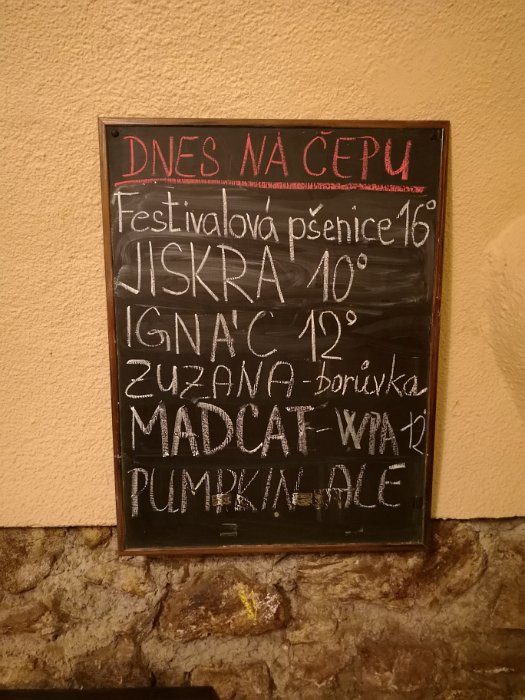 DNES NA ČEPU
Festivalová pšenice 16°
JISKRA 10°
IGNÁC 12°
ZUZANA - borůvka
MADCAT - WPA 12°
PUMPKIN ALE